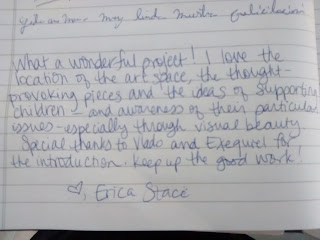 What a wonderful project! I love the
location of the art space, the thought-
provoking pieces and the ideas of supporting
children - and awareness of their particular
issues - especially through visual beauty
Special thanks to Vlado and Exequiel for
the introduction. keep up the good work!
♡, Erica Stace